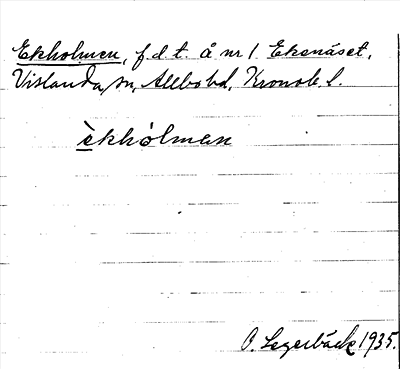 Ekholmen, f.d.t. å nr 1 Ekenäset,
Vislanda sn, Allbo hd, Kronob. l.
èkhólmen
O. Legerbäck 1935.